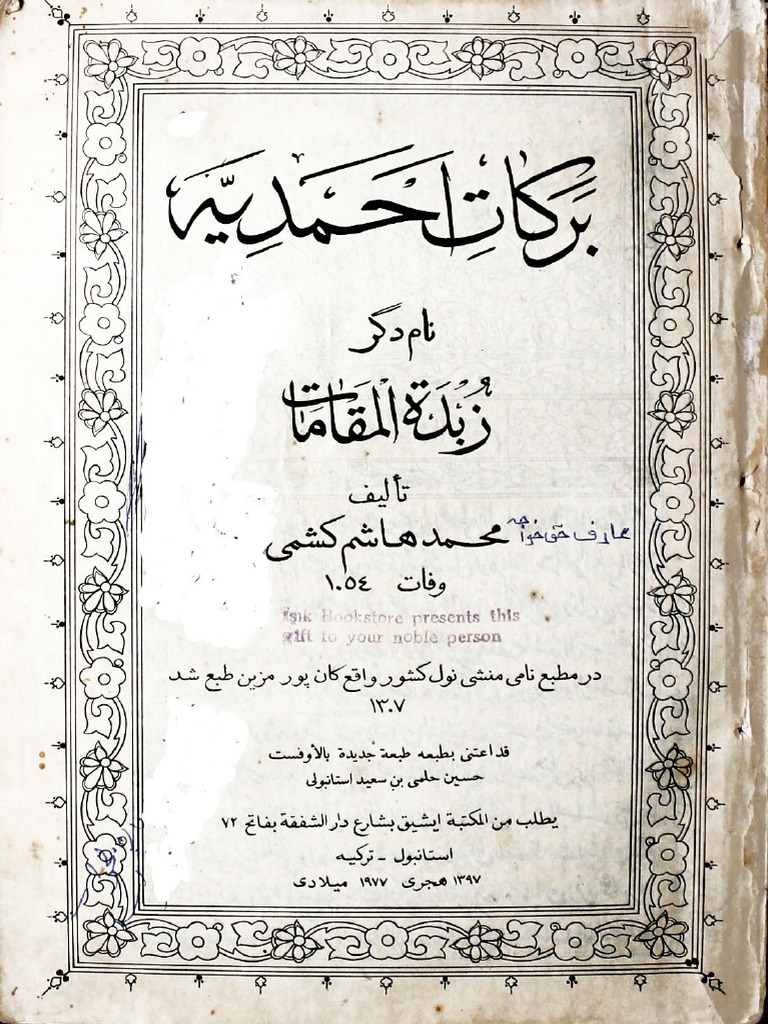 بَرَكاتِ احمدِیَّه
نام دگر
زُبْدَةُ الْمَقَامَات
تأليف
محمد هاشم كشمى عارف حق خواجه
وفات ١٠٥٤
Işık Bookstore presents this
gift to your noble person
در مطبع نامی منشی نول کشور واقع کان پور مزین طبع شد
١٣٠٧
قد اعتنى بطبعه طبعة جديدة بالأوفست
حسين حلمى بن سعيد استانبولى
يطلب من المكتبة ايشيق بشارع دار الشفقة بفاتح ٧٢
استانبول - تركيه
١٣٩٧ هجرى ١٩٧٧ ميلادى